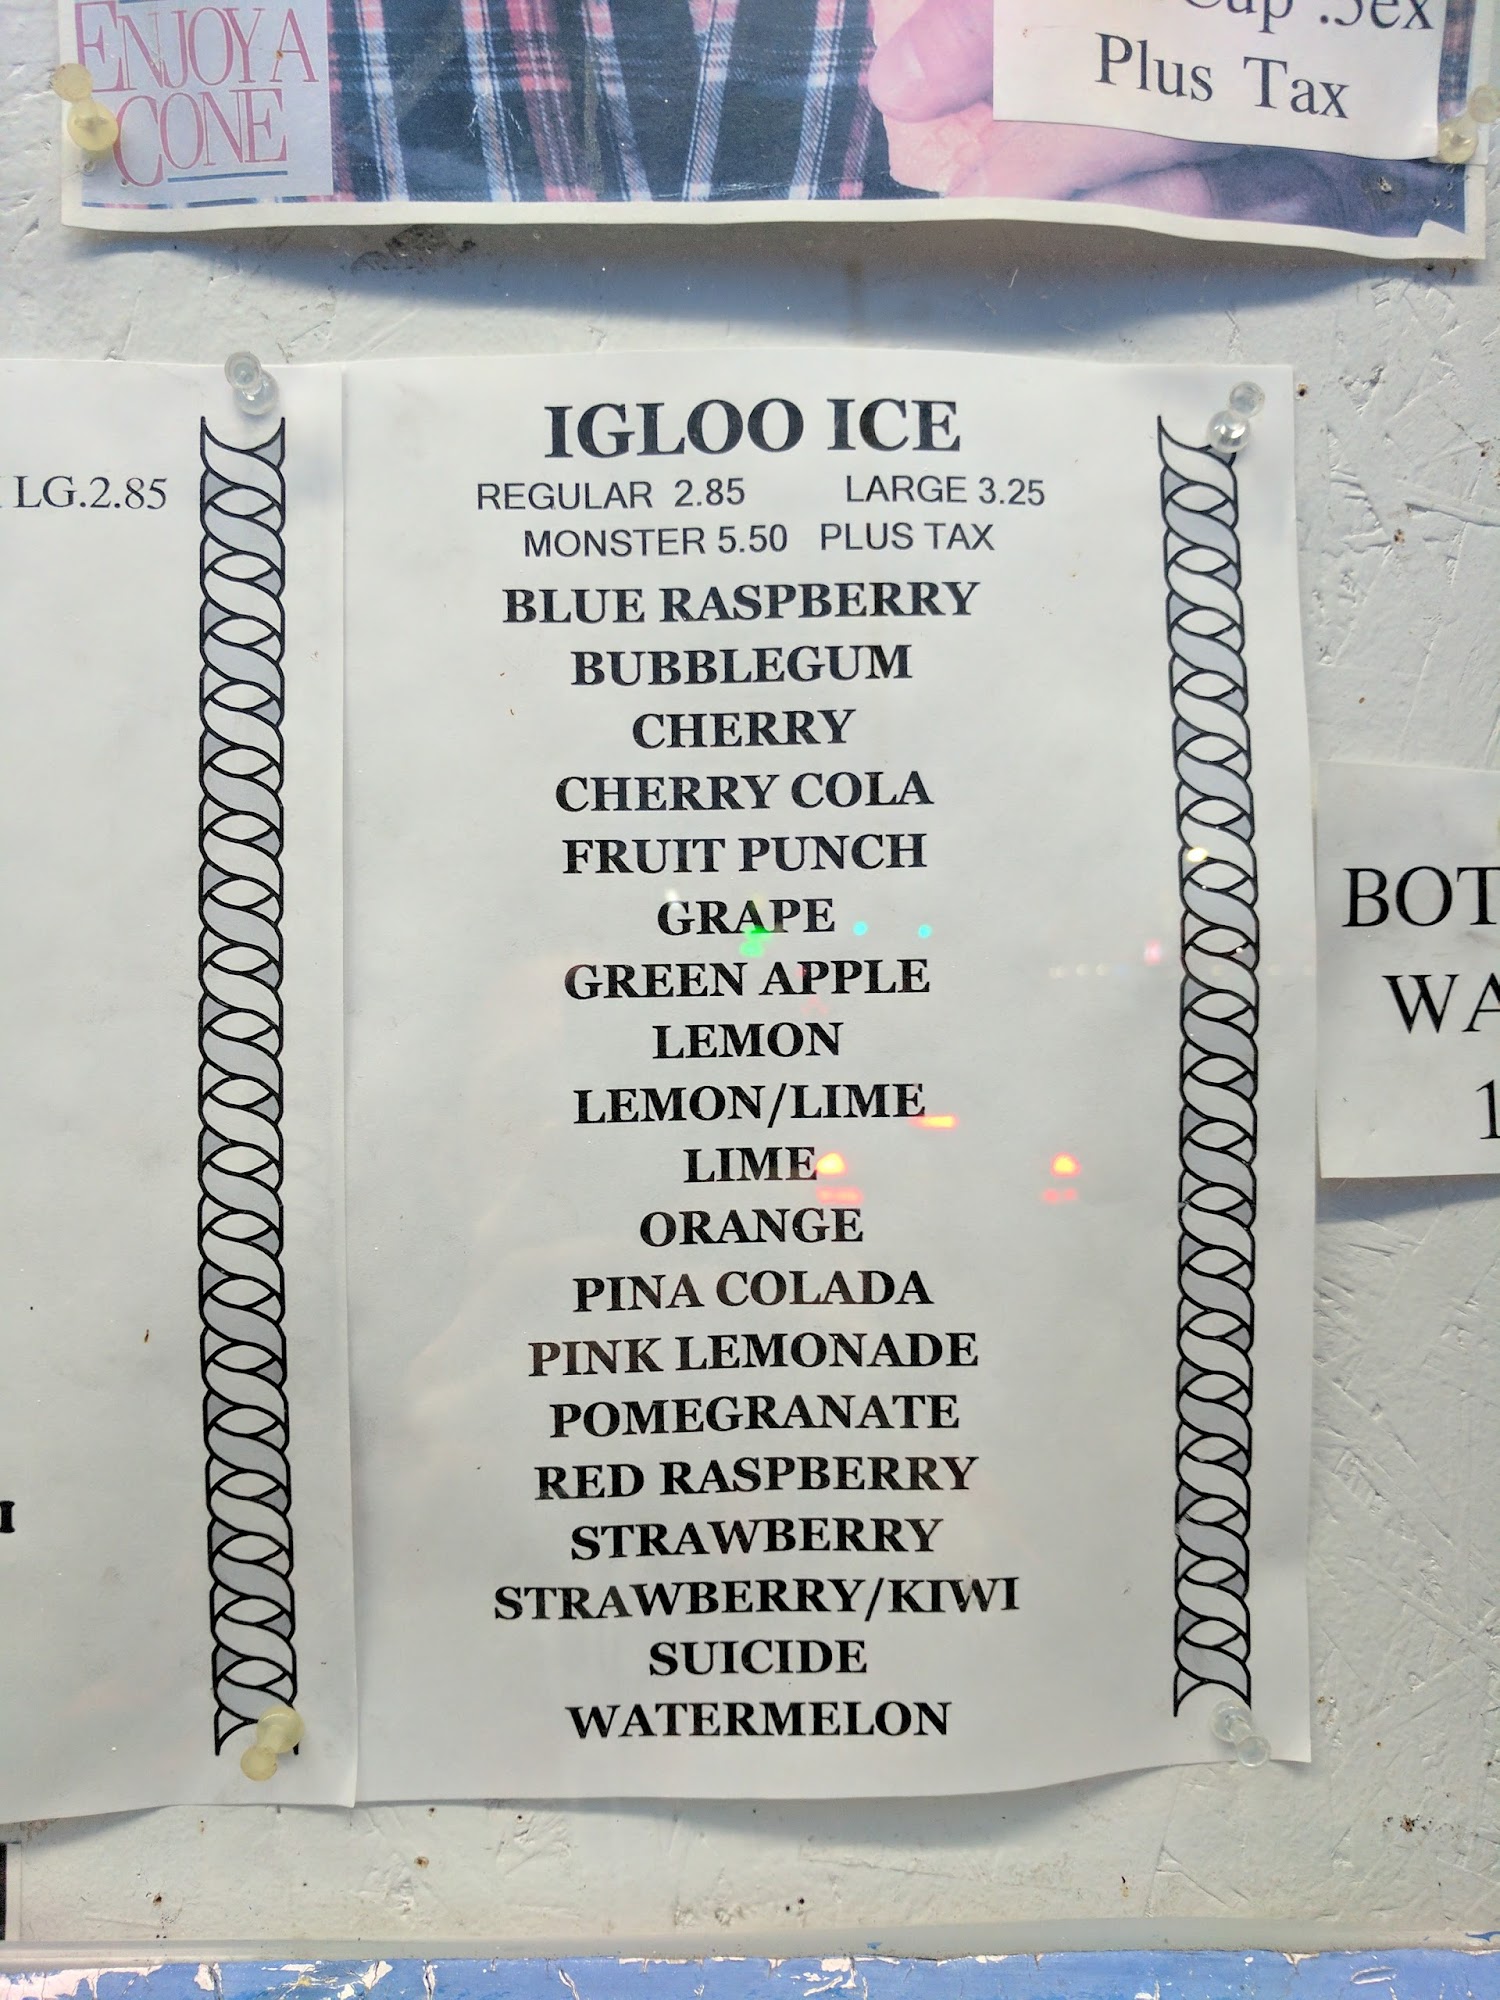 ENJOY A
CONE
Cap .5ex
Plus Tax
LG.2.85
IGLOO ICE
REGULAR 2.85 LARGE 3.25
MONSTER 5.50 PLUS TAX
BLUE RASPBERRY
BUBBLEGUM
CHERRY
CHERRY COLA
FRUIT PUNCH
GRAPE
GREEN APPLE
LEMON
LEMON/LIME
LIME
ORANGE
PINA COLADA
PINK LEMONADE
POMEGRANATE
RED RASPBERRY
STRAWBERRY
STRAWBERRY/KIWI
SUICIDE
WATERMELON
BOT
WA
1